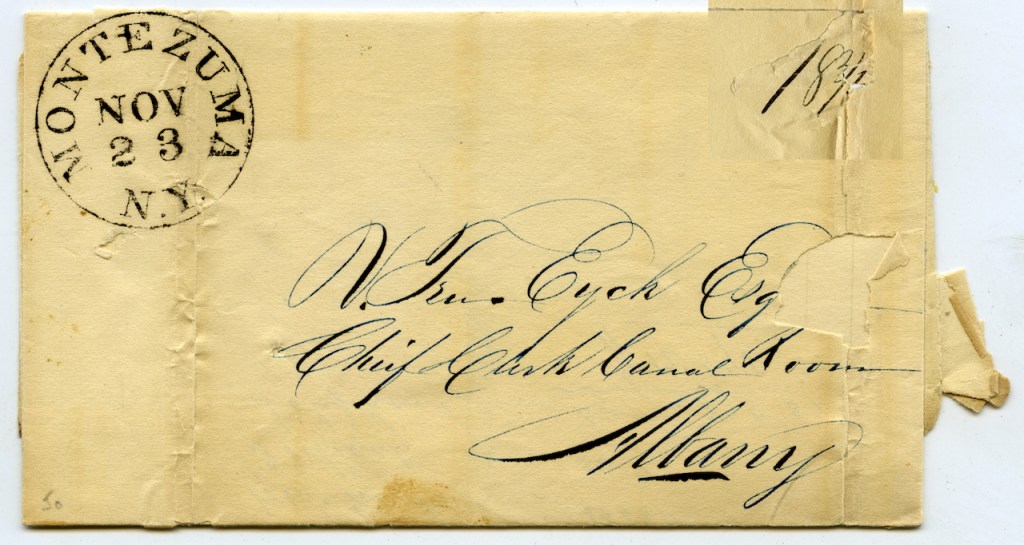 MONTEZUMA
NOV
23
N.Y.
V. Ten Eyck Esq
Chief Clerk Canal Room
Albany
50